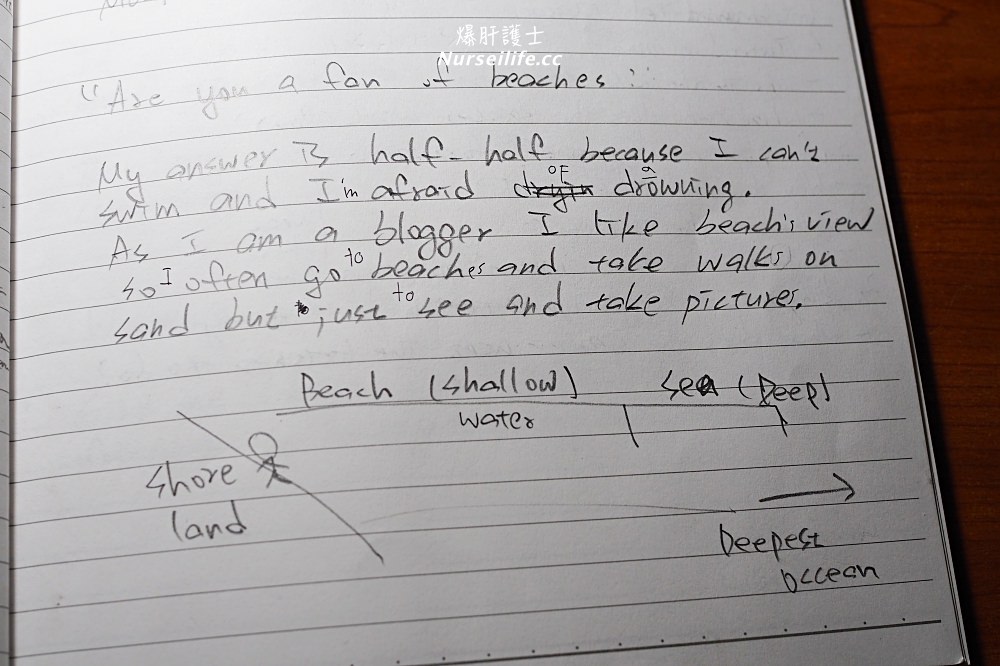 爆肝護士
Nurseilife.cc
"Are you a fan of beaches:
My answer is half-half because I can't
swim and I'm afraid of drowning.
As I am a blogger I like beach's view
so I often go to beaches and take walks on
sand but just to see and take pictures.
Beach (shallow) sea (Deep)
water
shore
land
Deepest
occean